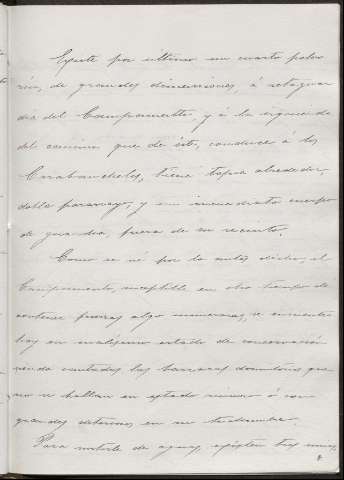 Existe por ultimo un cuarto polvo
rin, de grandes dimensiones, á retaguar
dia del Campamento, y á la izquierda
del camino que de éste, conduce á los
Carabancheles, tiene tapia alrededor,
doble pararrayo, y un inmediato cuerpo
de guardia, fuera de su recinto.
Como se vé por lo antes dicho, el
Campamento, susceptible en otro tiempo de
contener fuerzas algo numerosas, se encuentra
hoy en malísimo estado de conservación
siendo contados los barracones dormitorios que
no se hallan en estado ruinoso ó con
grandes deterioros en su techumbre.
Para surtirle de aguas, existen tres minas,